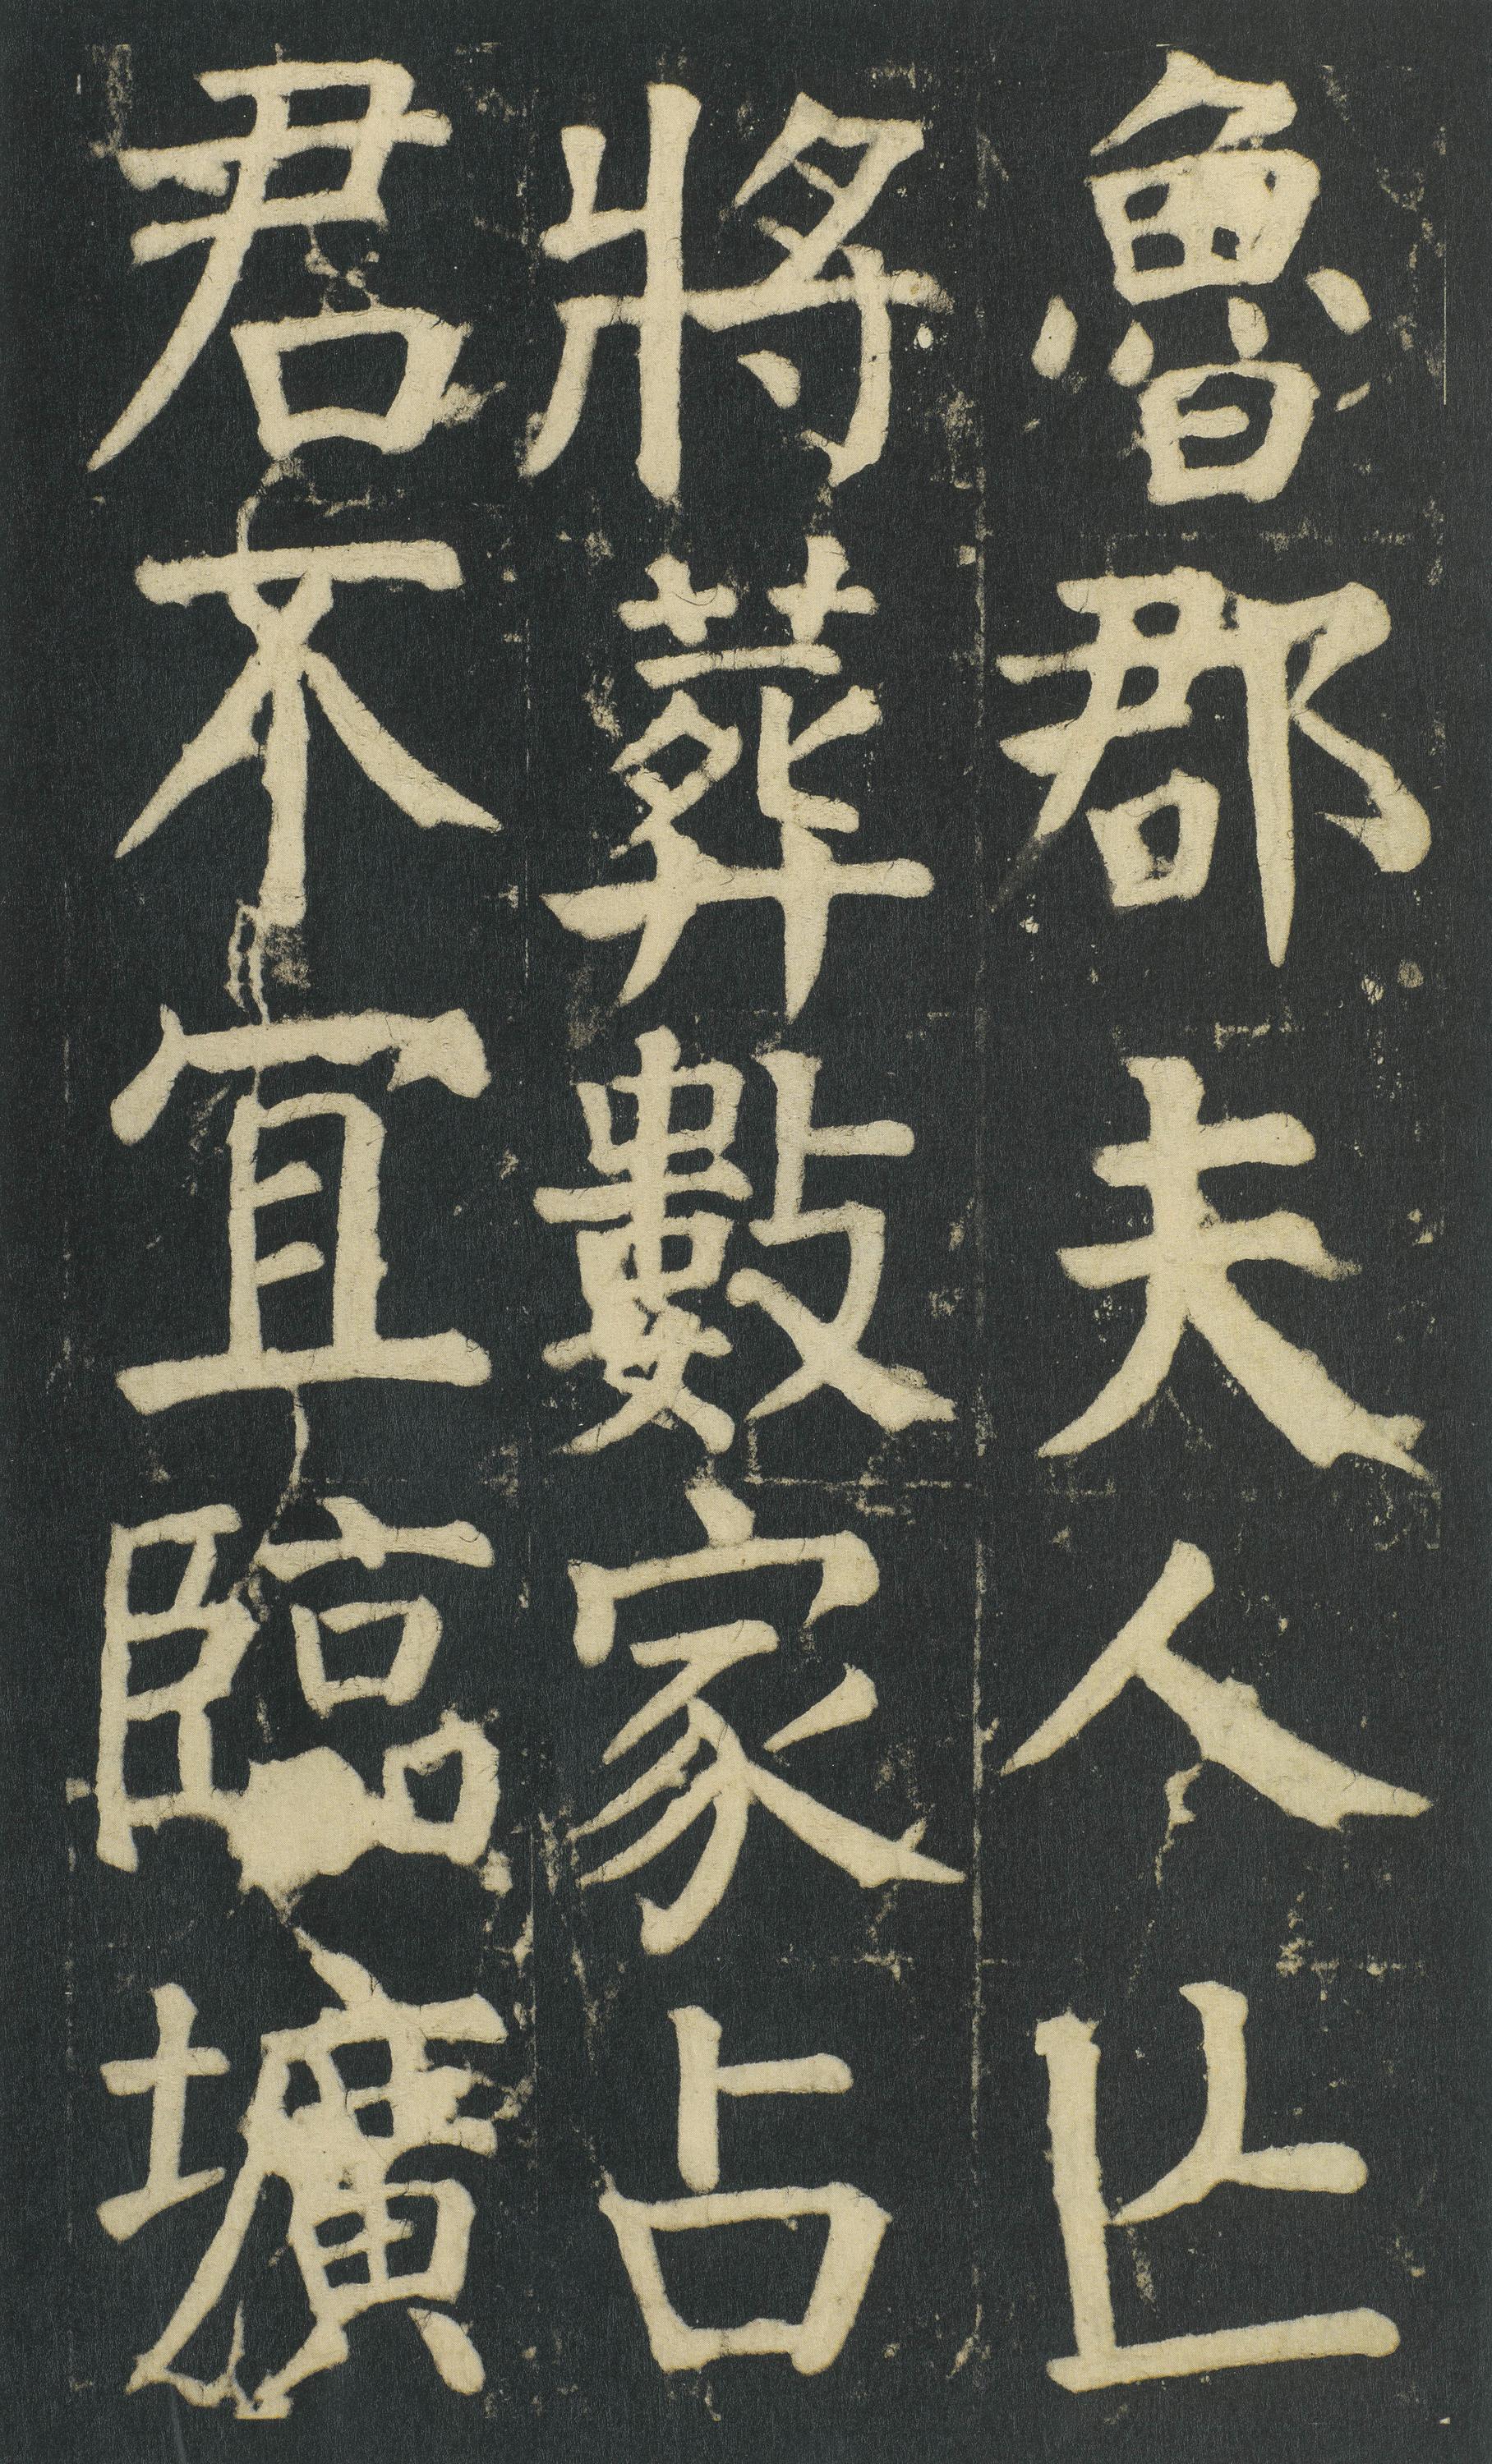 魯郡夫人止
將葬數家占
君不宜臨壙